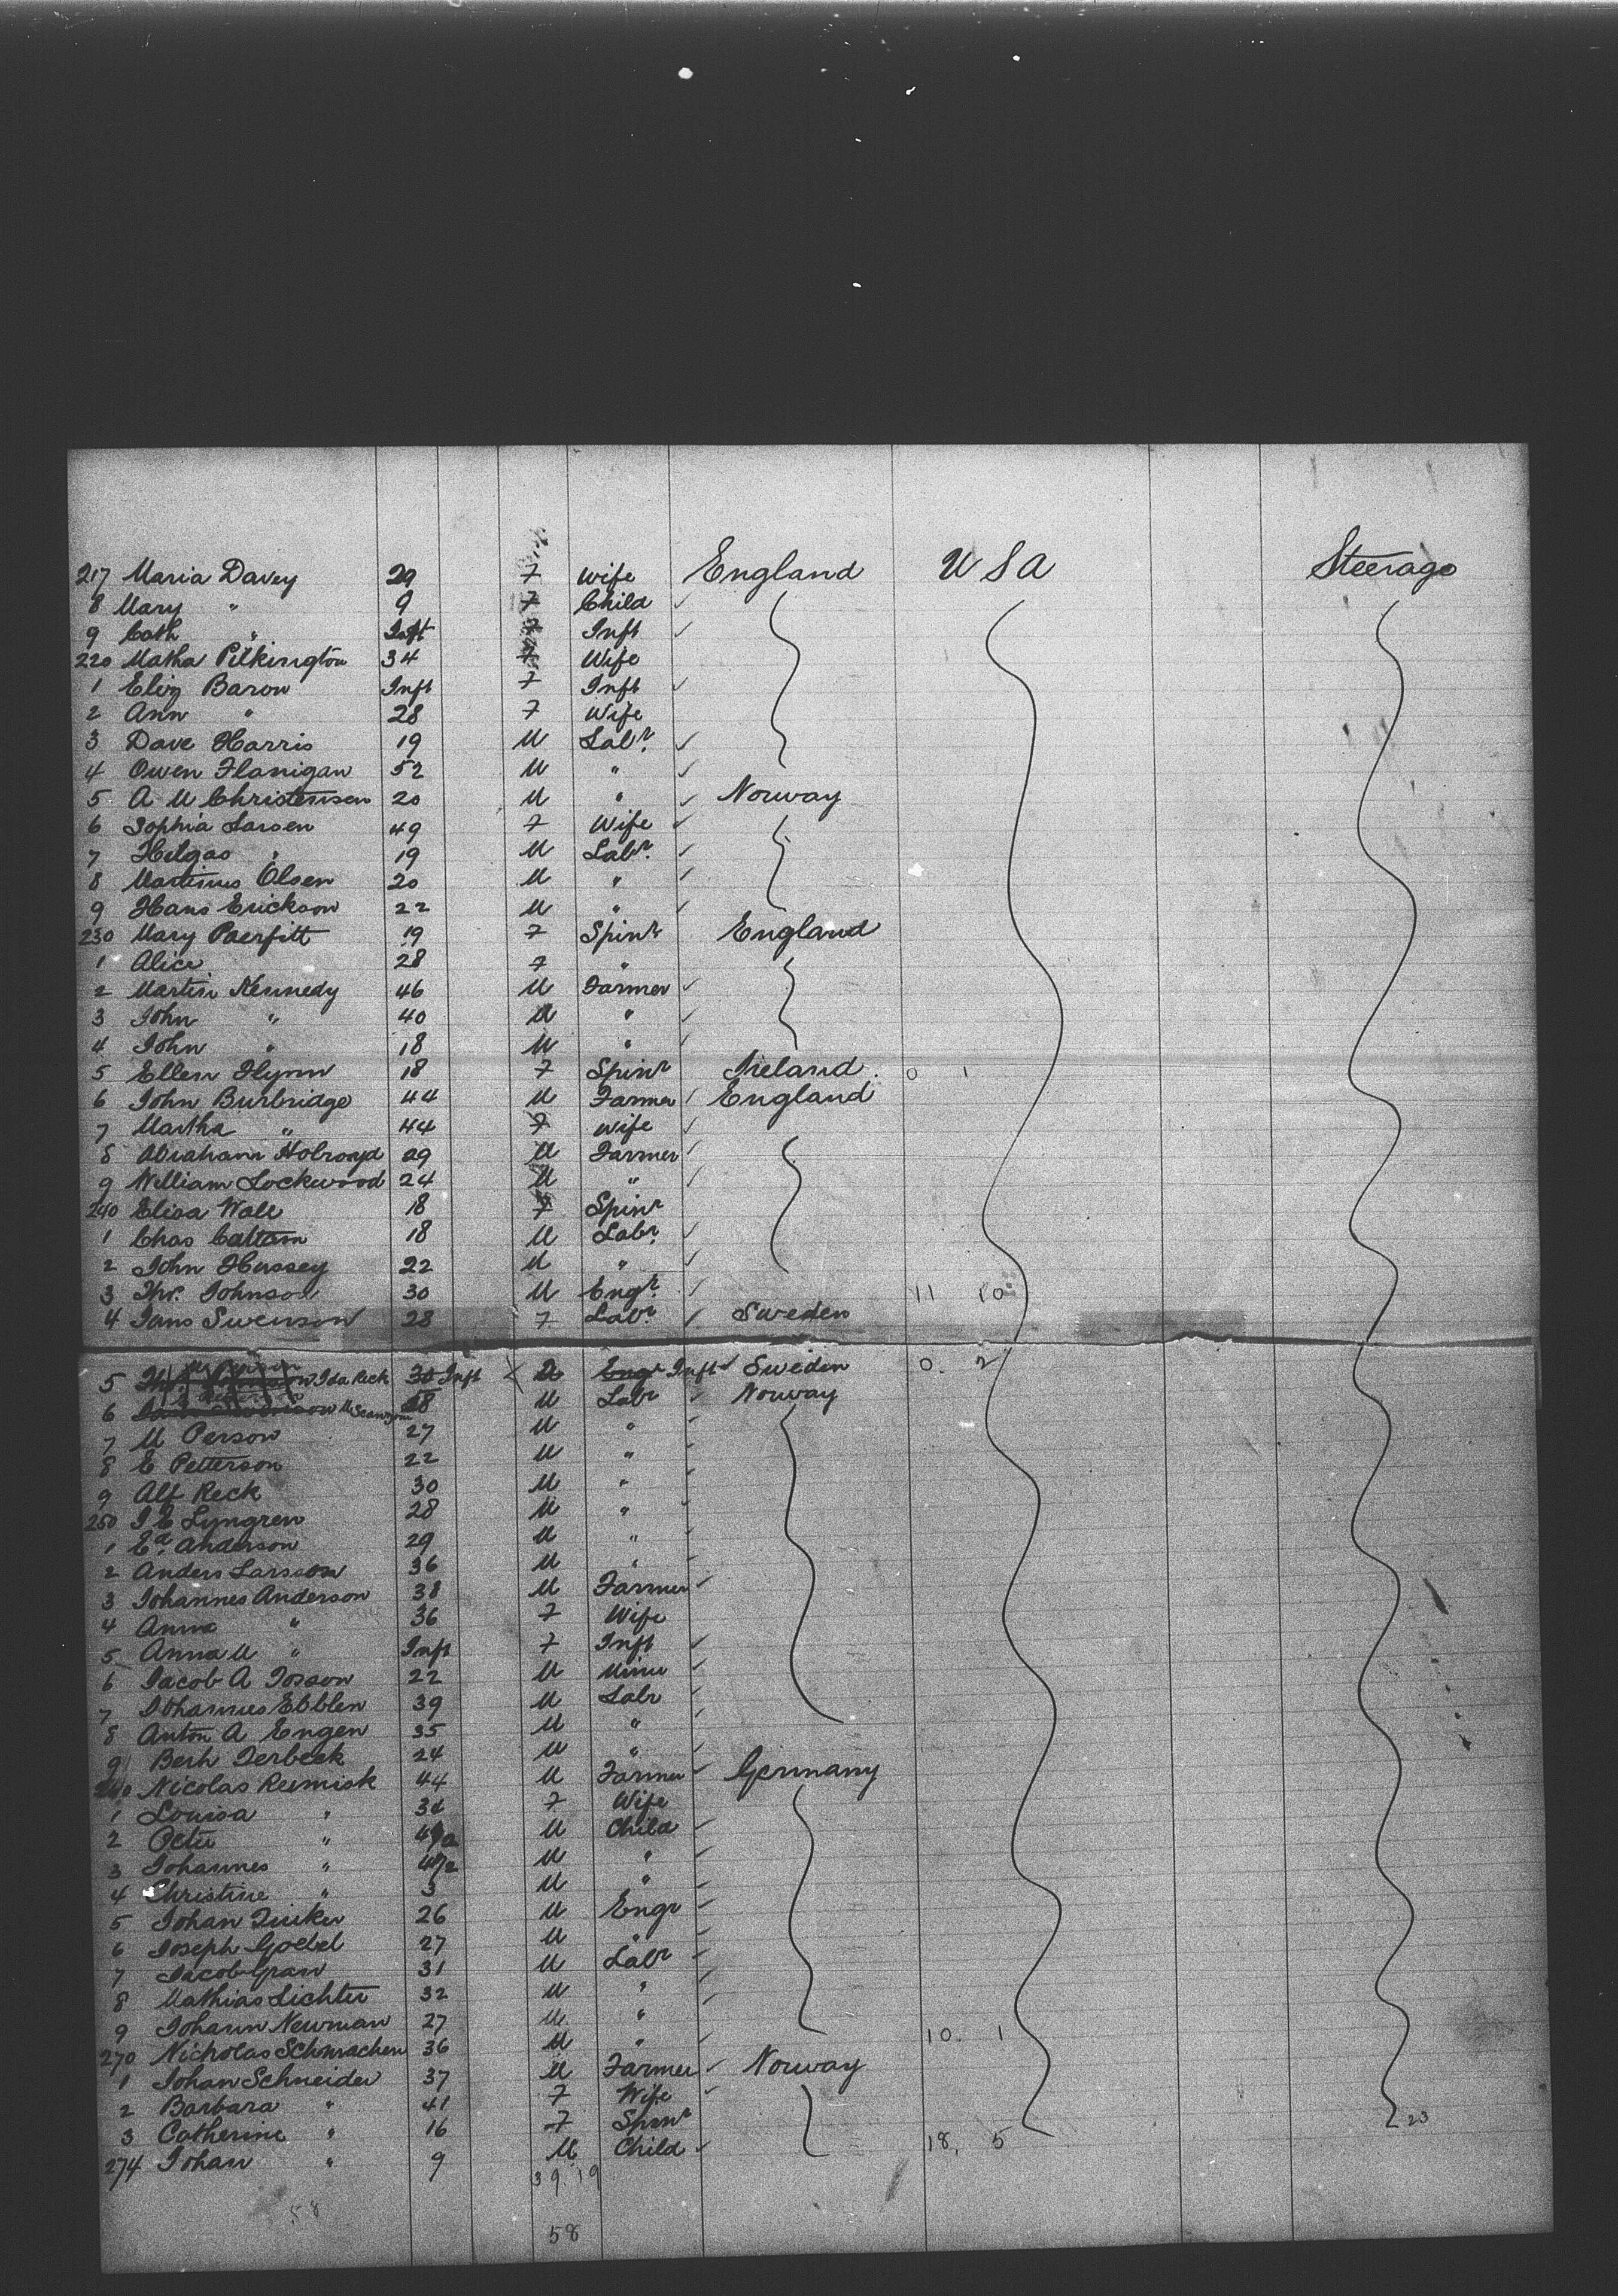 217 Maria Davey 29 F Wife England U S A Steerage
8 Mary " 9 F Child
9 Cath " Inft F Inft
220 Matha Pilkington 34 F Wife
1 Eliz Baron Inft F Inft
2 Ann " 28 F Wife
3 Dave Harris 19 M Labr.
4 Owen Flanigan 52 M "
5 A M Christensen 20 M " Norway
6 Sophia Larsen 49 F Wife
7 Helgas " 19 M Labr.
8 Martinus Olsen 20 M "
9 Hans Erickson 22 M "
230 Mary Paerfitt 19 F Spinr England
1 Alice 28 F "
2 Martin Kennedy 46 M Farmer
3 John " 40 M "
4 John " 18 M "
5 Ellen Flynn 18 F Spinr Ireland 0 1
6 John Burbridge 44 M Farmer England
7 Martha " 44 F Wife
8 Abraham Holroyd 29 M Farmer
9 William Lockwood 24 M "
240 Elisa Wall 18 F Spinr
1 Chas Cattam 18 M Labr.
2 John Hussey 22 M "
3 Thr. Johnson 30 M Engr. 11 10
4 Jans Swenson 28 F Labr. Sweden
5 Ida Reck 30 Inft M Engr Inft Sweden 0. 2
6 28 M Labr Norway
7 M Person 27 M "
8 E Petterson 22 M "
9 Alf Reck 30 M "
250 J E Lyngren 28 M "
1 Ed. Anderson 29 M "
2 Anders Larsson 36 M "
3 Johannes Anderson 38 M Farmer
4 Anna " 36 F Wife
5 Anna M " Inft F Inft
6 Jacob A Josson 22 M Miner
7 Johannes Ebblen 39 M Labr
8 Anton A Engen 35 M "
9 Berh Terbeek 24 M "
260 Nicolas Remisk 44 M Farmer Germany
1 Louisa " 34 F Wife
2 Peter " M Child
3 Johannes " M "
4 Christine " 3 M "
5 Johan Tinker 26 M Engr
6 Joseph Goebel 27 M "
7 Jacob Gran 31 M Labr
8 Mathias Lichter 32 M "
9 Johann Newman 27 M " 10. 1
270 Nicholas Schmachen 36 M "
1 Johan Schneider 37 M Farmer Norway
2 Barbara " 41 F Wife
3 Catherine " 16 F Spinr 23
274 Johan " 9 M Child 18, 5
39. 19
58
58